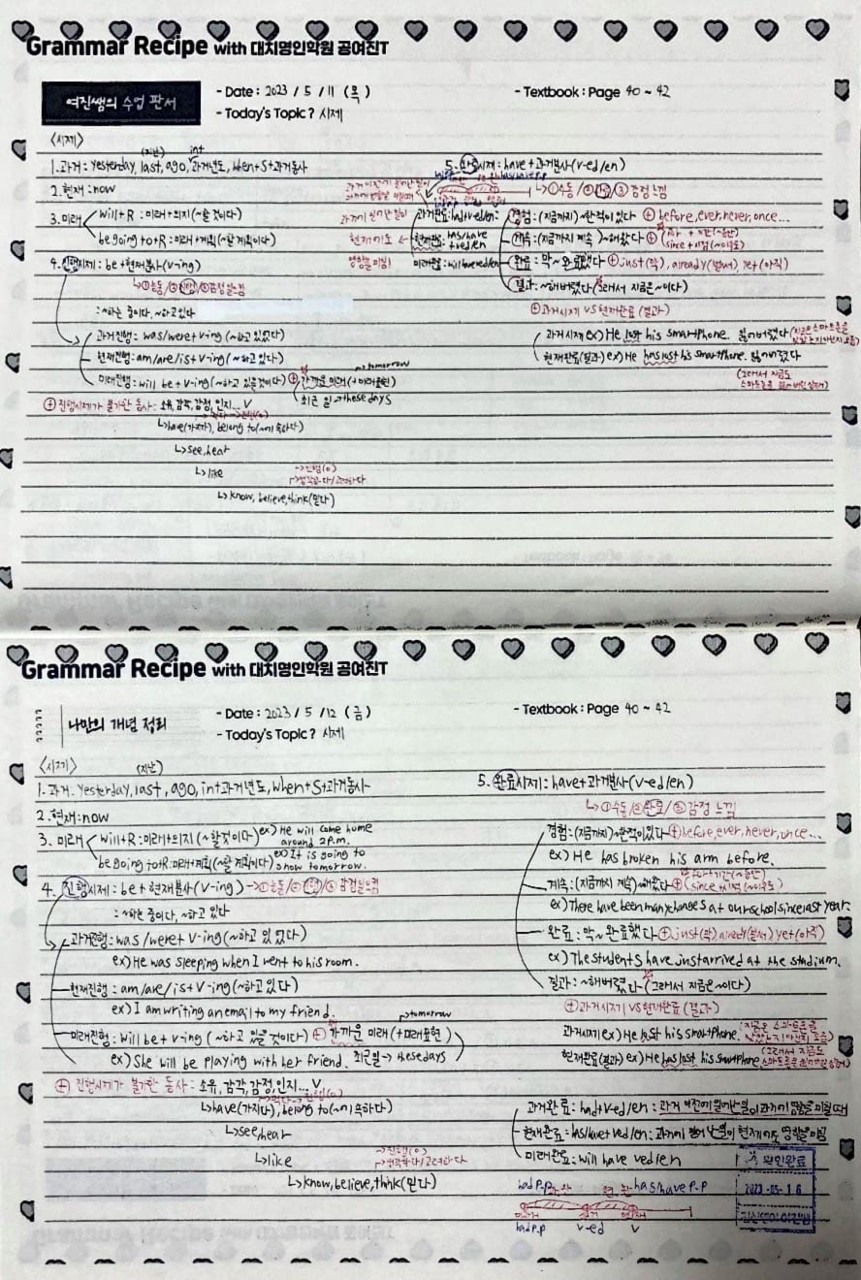 Grammar Recipe with 대치명인학원 공여진T
여진쌤의 수업 판서
- Date : 2023 / 5 / 11 ( 목 )
- Textbook : Page 40 ~ 42
- Today's Topic? 시제
<시제>
(지난)
int
1. 과거 : yesterday, last, ago, 과거년도, when+S+과거동사
2. 현재 : now
3. 미래
will+R : 미래+의지(~할 것이다)
be going to+R : 미래+계획(~할 계획이다)
4. 진행시제 : be+현재분사(v-ing)
→①수동/②진행/③감정느낌
: ~하는 중이다, ~하고있다
과거진행 : was/were+v-ing (~하고 있었다)
현재진행 : am/are/is+v-ing (~하고 있다)
미래진행 : will be+v-ing (~하고 있을것이다) ⊕ 가까운 미래 (+미래표현)
→tomorrow
최근 일→these days
⊕ 진행시제가 불가한 동사 : 소유, 감각, 감정, 인지... V
↳have(가지다), belong to(~에 속하다)
↳see, hear
↳like
→진행(o)
↳생각하다/고려하다
↳know, believe, think(믿다)
5. 완료시제 : have+과거분사(v-ed/en)
↳①수동/②완료/③감정 느낌
과거완료 : had+ved/en
현재완료 : has/have+ved/en
미래완료 : will have ved/en
경험 : (지금까지) ~한적이 있다 ⊕ before, ever, never, once...
계속 : (지금까지 계속) ~해왔다 ⊕ for+기간(~동안)
since+시점(~이후로)
완료 : 막~ 완료했다 ⊕ just(막), already(벌써), yet(아직)
결과 : ~해버렸다 (그래서 지금은 ~이다)
⊕ 과거시제 VS 현재완료 (결과)
과거시제 ex) He lost his smartphone. 잃어버렸다
현재완료(결과) ex) He has lost his smartphone. 잃어버렸다
(그래서 지금도
Grammar Recipe with 대치명인학원 공여진T
나만의 개념 정리
- Date : 2023 / 5 / 12 ( 금 )
- Textbook : Page 40 ~ 42
- Today's Topic? 시제
<시제>
(지난)
1. 과거 : yesterday, last, ago, in+과거년도, when+S+과거동사
2. 현재 : now
3. 미래
will+R : 미래+의지 (~할것이다) ex) He will come home
around 2p.m.
be going to+R : 미래+계획(~할 계획이다) ex) It is going to
snow tomorrow.
4. 진행시제 : be+현재분사(v-ing) →①수동/②진행/③감정느낌
: ~하는 중이다, ~하고 있다
과거진행 : was/were+v-ing (~하고 있었다)
ex) He was sleeping when I went to his room.
현재진행 : am/are/is+v-ing (~하고 있다)
ex) I am writing an email to my friend.
→tomorrow
미래진행 : will be+v-ing (~하고 있을 것이다) ⊕ 가까운 미래 (+미래표현)
ex) She will be playing with her friend. 최근일→these days
⊕ 진행시제가 불가한 동사 : 소유, 감각, 감정, 인지... V
↳have(가지다), belong to(~에 속하다)
↳see, hear
↳like
→진행(o)
↳생각하다/고려하다
↳know, believe, think(믿다)
5. 완료시제 : have+과거분사(v-ed/en)
↳①수동/②완료/③감정 느낌
경험 : (지금까지) ~한적이 있다 ⊕ before, ever, never, once...
ex) He has broken his arm before.
for+기간(~동안)
계속 : (지금까지 계속) ~해왔다 ⊕ (since+시점(~이후로)
ex) There have been many changes at our school since last year.
완료 : 막~ 완료했다 ⊕ just(막) already(벌써) yet(아직)
ex) The students have just arrived at the stadium.
결과 : ~해버렸다 (그래서 지금은 ~이다)
⊕ 과거시제 VS 현재완료 (결과)
과거시제 ex) He lost his smartphone.
현재완료(결과) ex) He has lost his smartphone (그래서 지금도
과거완료 : had+v-ed/en : 과거 이전에 일어난 일이 과거에 영향을 미칠 때
현재완료 : has/have+ved/en : 과거에 일어난 일이 현재에도 영향을 미침
미래완료 : will have ved/en
had p.p
has/have p.p
had p.p
v-ed
v
확인완료
2023 -05- 1 6